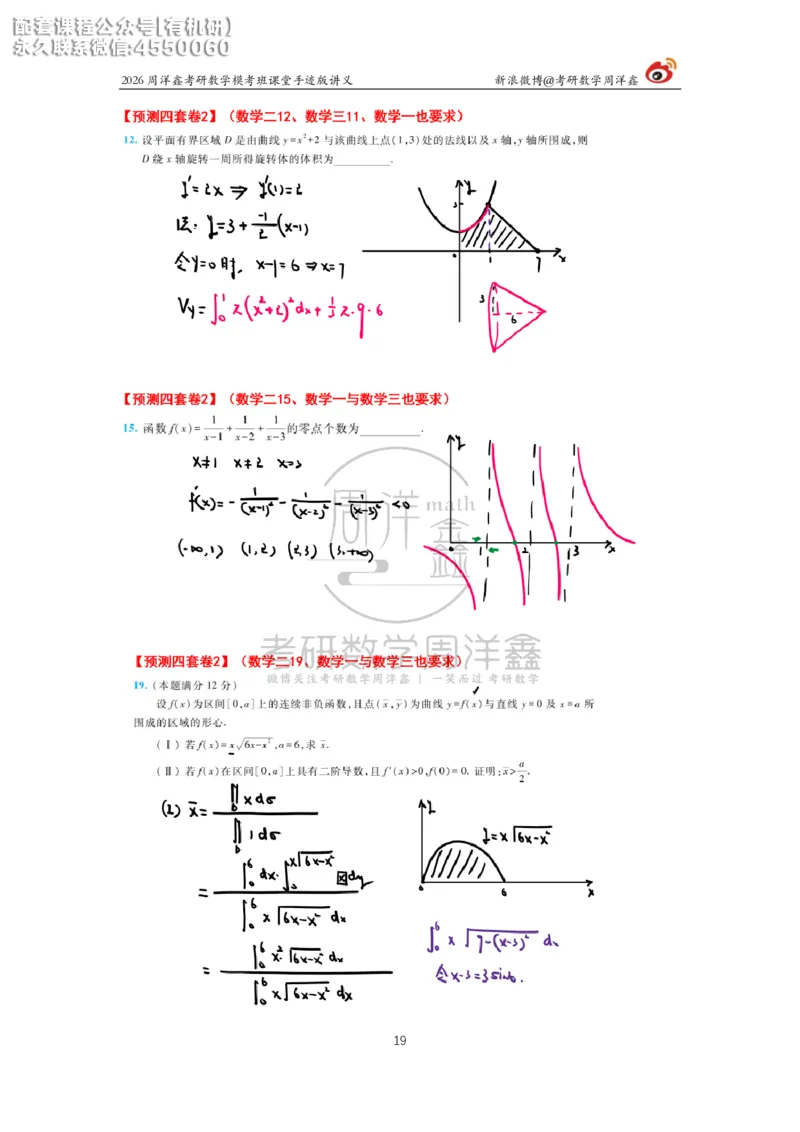 配套课程公众号[有机研)
永久联系微信:4550060
2026 周洋鑫考研数学模考班课堂手迹版讲义 新浪微博@考研数学周洋鑫
【预测四套卷2】(数学二12、数学三11、数学一也要求)
12. 设平面有界区域 D 是由曲线 y=x²+2 与该曲线上点(1,3)处的法线以及 x 轴,y 轴所围成,则
D 绕 x 轴旋转一周所得旋转体的体积为________.
y'=2x ⇒ y'(1)=2
法: y=3+\frac{-1}{2}(x-1)
令y=0时, x-1=6 ⇒ x=7
Vy=∫_0^1 π(x²+2)²dx+\frac{1}{3}π·9·6
y
3
0 1 7 x
3
6
【预测四套卷2】(数学二15、数学一与数学三也要求)
15. 函数 f(x)=\frac{1}{x-1}+\frac{1}{x-2}+\frac{1}{x-3}的零点个数为________.
x≠1 x≠2 x=3
f'(x)=-\frac{1}{(x-1)²}-\frac{1}{(x-2)²}-\frac{1}{(x-3)²}<0
(-∞,1) (1,2) (2,3) (3,+∞)
y
0 1 2 3 x
周洋 math
鑫
考研数学周洋鑫
微博关注考研数学周洋鑫 | 一笑而过 考研数学
【预测四套卷2】(数学二19、数学一与数学三也要求)
19. (本题满分 12 分)
设 f(x)为区间[0,a]上的连续非负函数,且点(x̄,ȳ)为曲线 y=f(x)与直线 y=0 及 x=a 所
围成的区域的形心.
(Ⅰ) 若 f(x)=x√(6x-x²),a=6,求 x̄.
(Ⅱ) 若 f(x)在区间[0,a]上具有二阶导数,且 f'(x)>0,f(0)=0. 证明:x̄>\frac{a}{2}.
(2) x̄=\frac{∬_D xdσ}{∬_D 1dσ}
=\frac{∫_0^6 dx·∫_0^{x√(6x-x²)} x dy}{∫_0^6 x√(6x-x²) dx}
=\frac{∫_0^6 x²·√(6x-x²) dx}{∫_0^6 x√(6x-x²) dx}
y
y=x√(6x-x²)
0 6 x
∫_0^6 x√(9-(x-3)²) dx
令x-3=3sinθ.
19